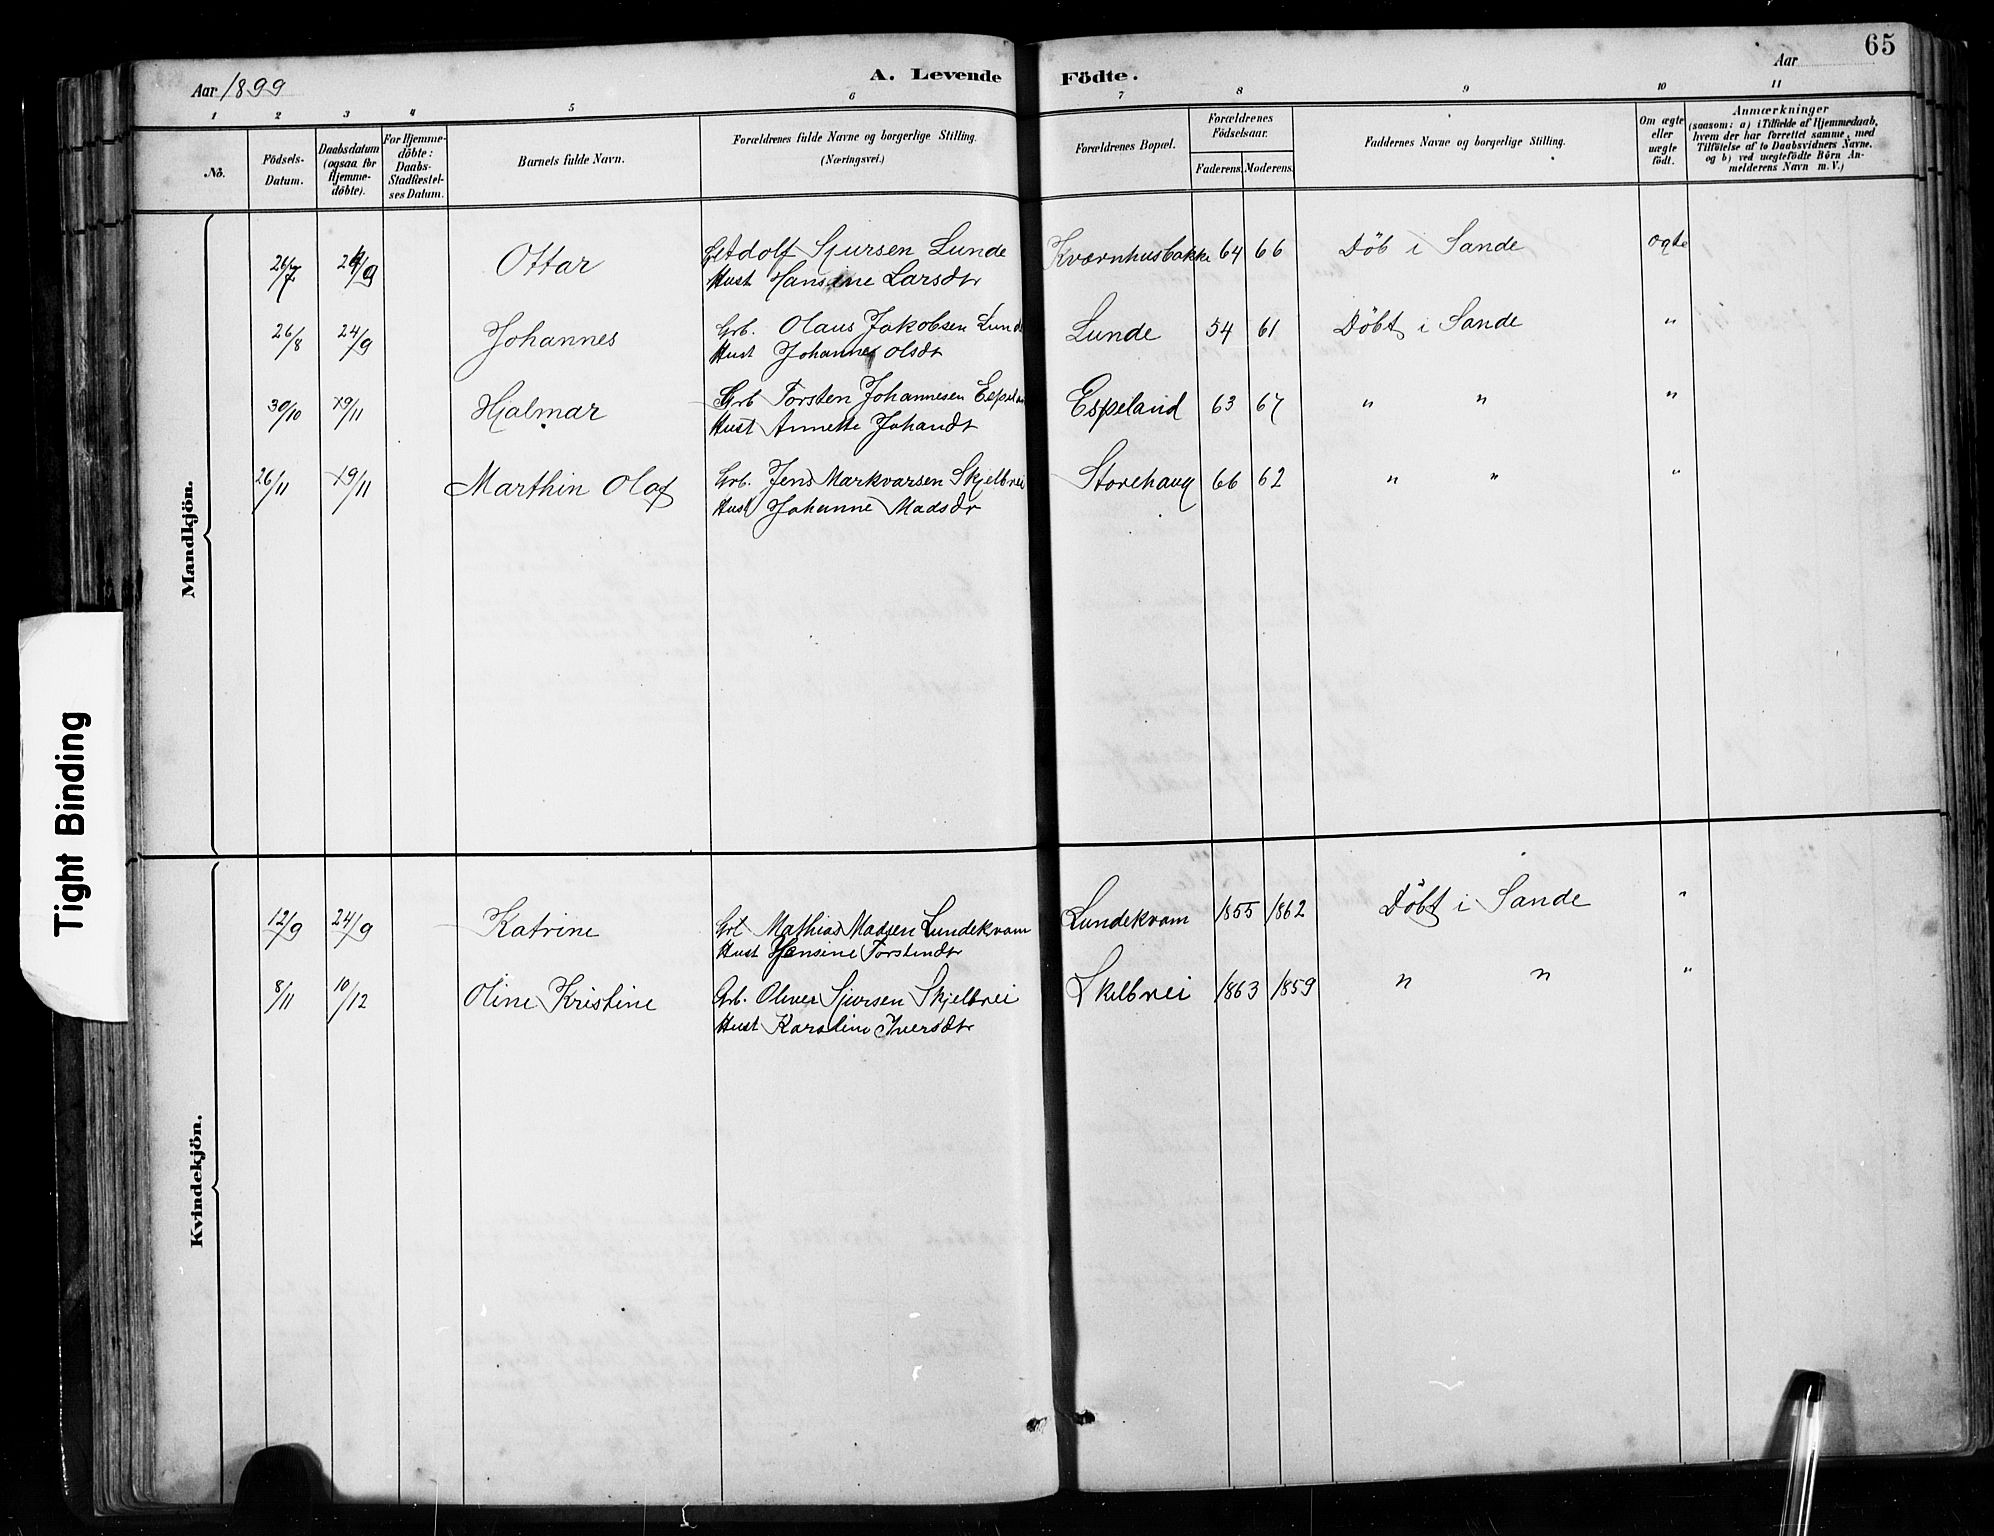 65
Aar 1899
A. Levende Födte.
Aar
1 2 3 4 5 6 7 8 9 10 11
No.
Födsels-Datum.
Daabsdatum (ogsaa for Hjemme-döbte).
For Hjemme-döbte: Daabs-Stadfæstel-ses Datum.
Barnets fulde Navn.
Forældrenes fulde Navne og borgerlige Stilling.
(Næringsvei.)
Forældrenes Bopæl.
Forældrenes Födselsaar.
Faderens. Moderens.
Faddernes Navne og borgerlige Stilling.
Om ægte eller uægte födt.
Anmærkninger
(saasom: a) i Tilfælde af Hjemmedaab, hvem der har forrettet samme, med Tilföielse af to Daabsvidners Navne. og b) ved uægtefödte Börn An-melderens Navn m. V.)
Mandkjön.
26/7 24/9 Ottar Adolf Sjursen Lunde Kværnhusbakke 64 66 Döb i Sande ægte
Hust Hansine Larsdtr
26/8 24/9 Johannes Grb. Olaus Jakobsen Lunde Lunde 54 61 Döbt i Sande "
Hust Johanne Olsdtr
30/10 19/11 Hjalmar Grb Torsten Johannesen Espeland Espeland 63 67 " " "
Hust Annette Johandtr
26/11 19/11 Marthin Olaf Grb. Jens Markvarsen Skjelbrei Storehaug 66 62 " " "
Hust Johanne Madsdr
Kvindekjön.
12/9 24/9 Katrine Mathias Madsen Lundekvam Lundekvam 1855 1862 Döbt i Sande "
Hust Hansine Torstendtr
8/11 10/12 Oline Kristine Grb. Oliver Sjursen Skjelbrei Skelbrei 1863 1859 " " "
Hust Karoline Iversdtr
Tight Binding